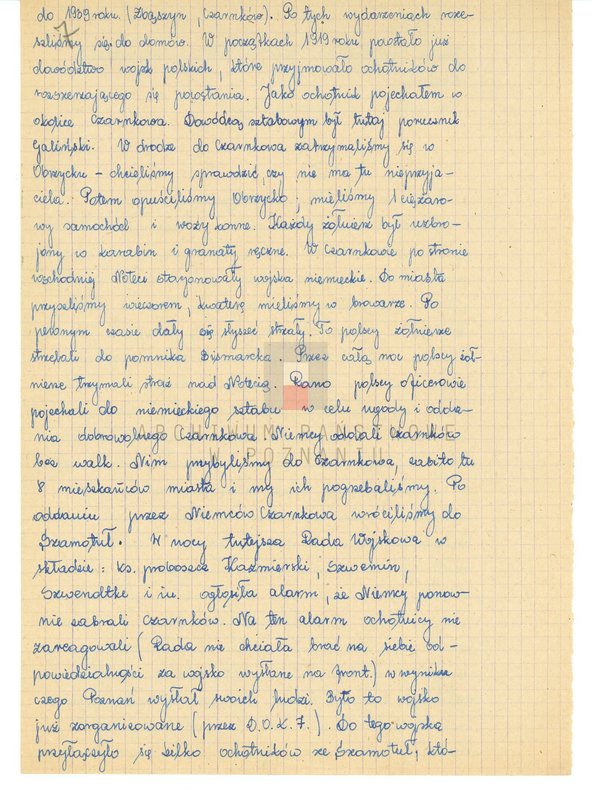 7
do 1939 roku. (Zbąszyń, Czarnków). Po tych wydarzeniach roze-
szliśmy się do domów. W początkach 1919 roku powstało już
dowództwo wojsk polskich, które przyjmowało ochotników do
rozszerzającego się powstania. Jako ochotnik pojechałem w
okolice Czarnkowa. Dowódcą sztabowym był tutaj porucznik
Galiński. W drodze do Czarnkowa zatrzymaliśmy się w
Obrzycku - chcieliśmy sprawdzić, czy nie ma tu nieprzyja-
ciela. Potem opuściliśmy Obrzycko; mieliśmy 1 ciężaro-
wy samochód i wozy konne. Każdy żołnierz był uzbro-
jony w karabin i granaty ręczne. W Czarnkowie po stronie
wschodniej Noteci stacjonowały wojska niemieckie. Do miasta
przyszliśmy wieczorem, kwaterę mieliśmy w browarze. Po
pewnym czasie dały się słyszeć strzały. To polscy żołnierze
strzelali do pomnika Bismarcka. Przez całą noc polscy żoł-
nierze trzymali straż nad Notecią. Rano polscy oficerowie
pojechali do niemieckiego sztabu w celu ugody i odda-
nia dobrowolnego Czarnkowa. Niemcy oddali Czarnków
bez walk. Nim przybyliśmy do Czarnkowa, zabito tu
8 mieszkańców miasta i my ich pogrzebaliśmy. Po
oddaniu przez Niemców Czarnkowa wróciliśmy do
Szamotuł. W nocy tutejsza Rada Wojskowa w
składzie: ks. proboszcz Kaźmierski, Szwemin,
Szwendtke i in. ogłosiła alarm, że Niemcy ponow-
nie zabrali Czarnków. Na ten alarm ochotnicy nie
zareagowali (Rada nie chciała brać na siebie od-
powiedzialności za wojsko wysłane na front.) w wyniku
czego Poznań wysłał swoich ludzi. Było to wojsko
już zorganizowane (przez D.O.K.7.). Do tego wojska
przyłączyło się kilku ochotników ze Szamotuł, któ-
ARCHIWUM PAŃSTWOWE
W POZNANIU